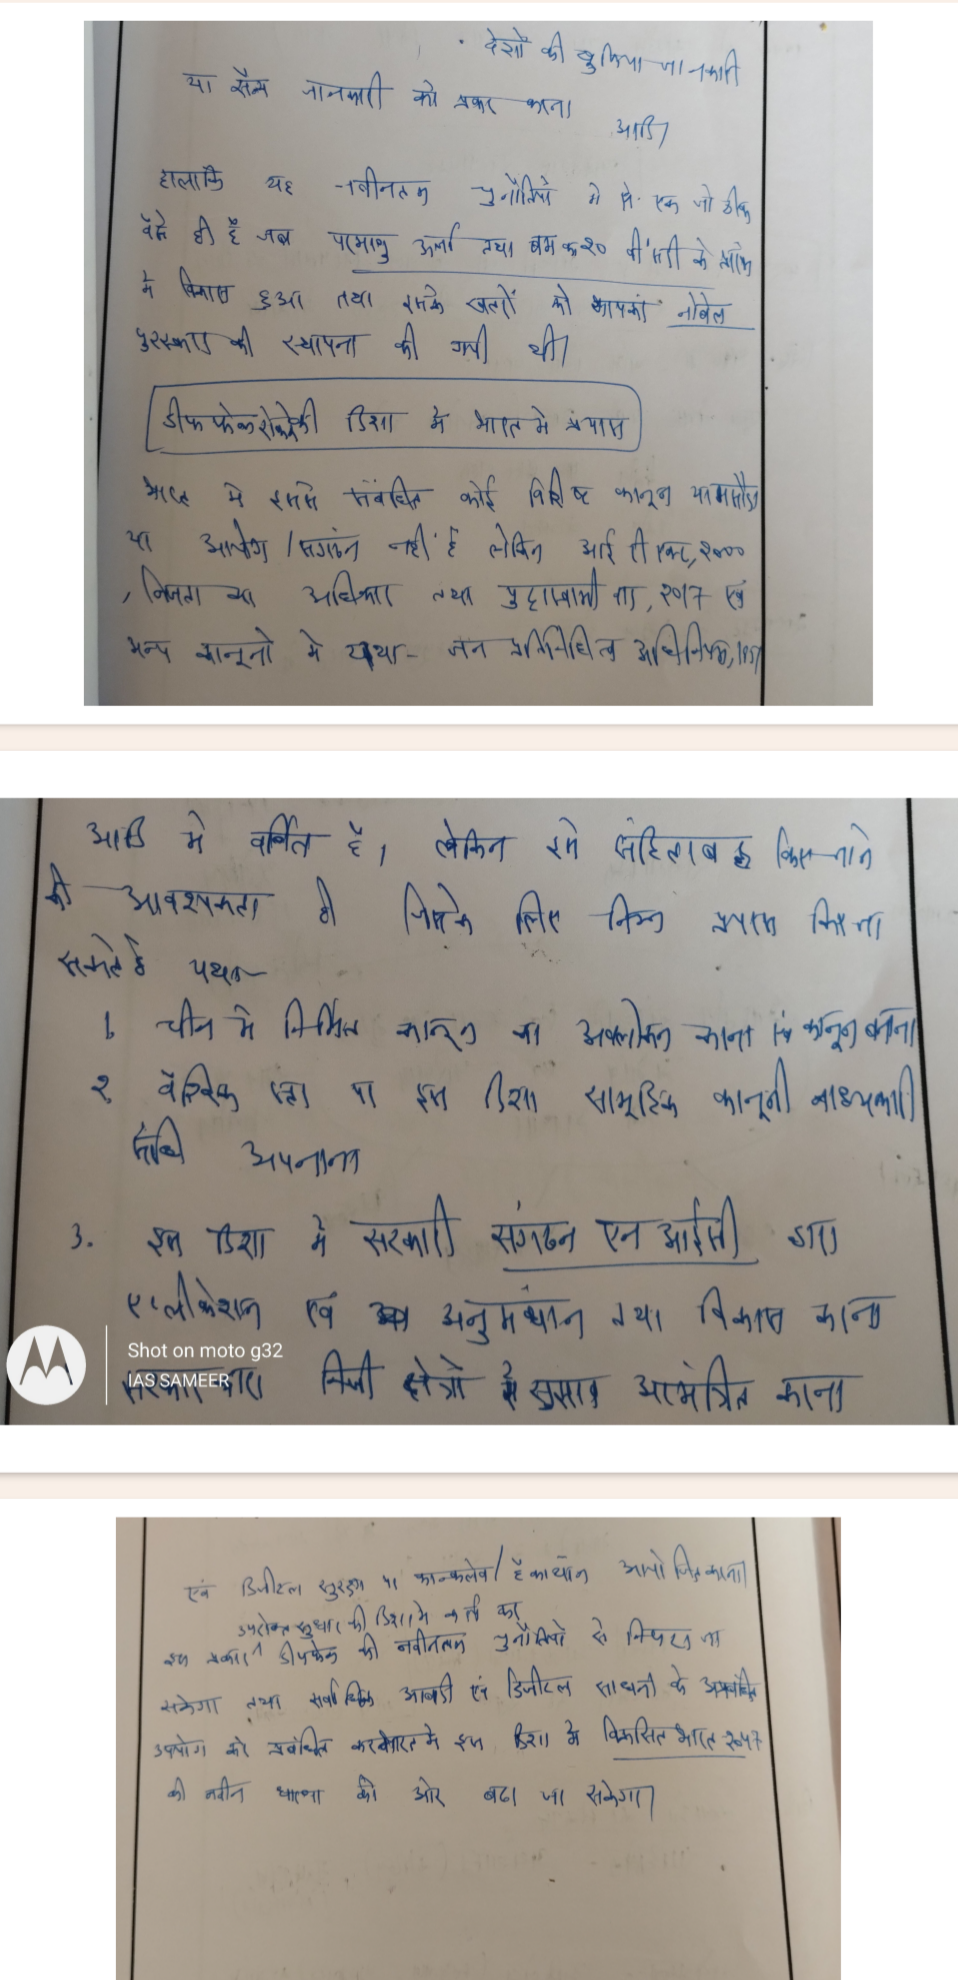 • देशों की खुफिया जानकारी
या सैन्य जानकारी को प्रकट करना
आदि।
हालाकि यह नवीनतम चुनौतियों मे से एक जो ठीक
वैसे ही है जब परमाणु ऊर्जा तथा बम का २० वीं सदी के
मे विकास हुआ तथा इसके खतरों को भापकर नोबेल
पुरस्कार की स्थापना की गयी थी।
डीप फेक रोकने की दिशा मे भारत मे प्रयास
भारत मे इससे संबंधित कोई विशिष्ट कानून या मसौदा
या आयोग / संगठन नहीं है लेकिन आई टी एक्ट, २०००
, निजता का अधिकार तथा पुट्टास्वामी वाद, २०१7 एवं
अन्य कानूनो मे यथा- जन प्रतिनिधित्व अधिनियम,
आदि मे वर्णित है, लेकिन इसे संहिताबद्ध किए जाने
की आवश्यकता है जिसके लिए निम्न प्रयास किए जा
सकते है यथा-
1. चीन मे निर्मित कानून का अवलोकन करना एवं कानून बनाना
२. वैश्विक स्तर पर इस दिशा सामूहिक कानूनी बाध्यकारी
संधि अपनाना
3. इस दिशा में सरकारी संगठन एन आईसी द्वारा
एप्लीकेशन एवं अनुसंधान तथा विकास करना
Shot on moto g32
IAS SAMEER
सरकार द्वारा निजी क्षेत्रो से सुझाव आमंत्रित करना
एवं डिजीटल सुरक्षा पर कान्कलेव / हैकाथॉन आयोजित करना।
उपरोक्त सुधार की दिशा मे कार्य कर
इस प्रकार ^ डीपफेक की नवीनतम चुनौतियों से निपटा जा
सकेगा तथा सर्वाधिक आबादी एवं डिजीटल साधनों के
उपयोग को प्रबंधित कर भारत मे इस दिशा में विकसित भारत २०५७
की नवीन धारणा की ओर बढा जा सकेगा।